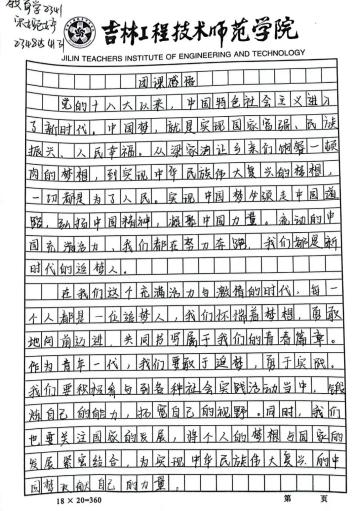 教育学2341
吉林工程技术师范学院
JILIN TEACHERS INSTITUTE OF ENGINEERING AND TECHNOLOGY
团课感悟
党的十八大以来，中国特色社会主义进入
了新时代。中国梦，就是实现国家富强、民族
振兴、人民幸福。从梁家河让乡亲们饱餐一顿
肉的梦想，到实现中华民族伟大复兴的梦想，
一切都是为了人民。实现中国梦必须走中国道
路，弘扬中国精神，凝聚中国力量。流动的中
国充满活力，我们都在努力奔跑，我们都是新
时代的追梦人。
在我们这个充满活力与激情的时代，每一
个人都是一位追梦人，我们怀揣着梦想，勇敢
地向前迈进，共同书写属于我们的青春篇章。
作为青年一代，我们要敢于追梦，勇于实践。
我们要积极参与到各种社会实践活动当中，锻
炼自己的能力，拓宽自己的视野。同时，我们
也要关注国家的发展，将个人的梦想与国家的
发展紧密结合，为实现中华民族伟大复兴的中
国梦贡献自己的力量。
18×20=360 第 页